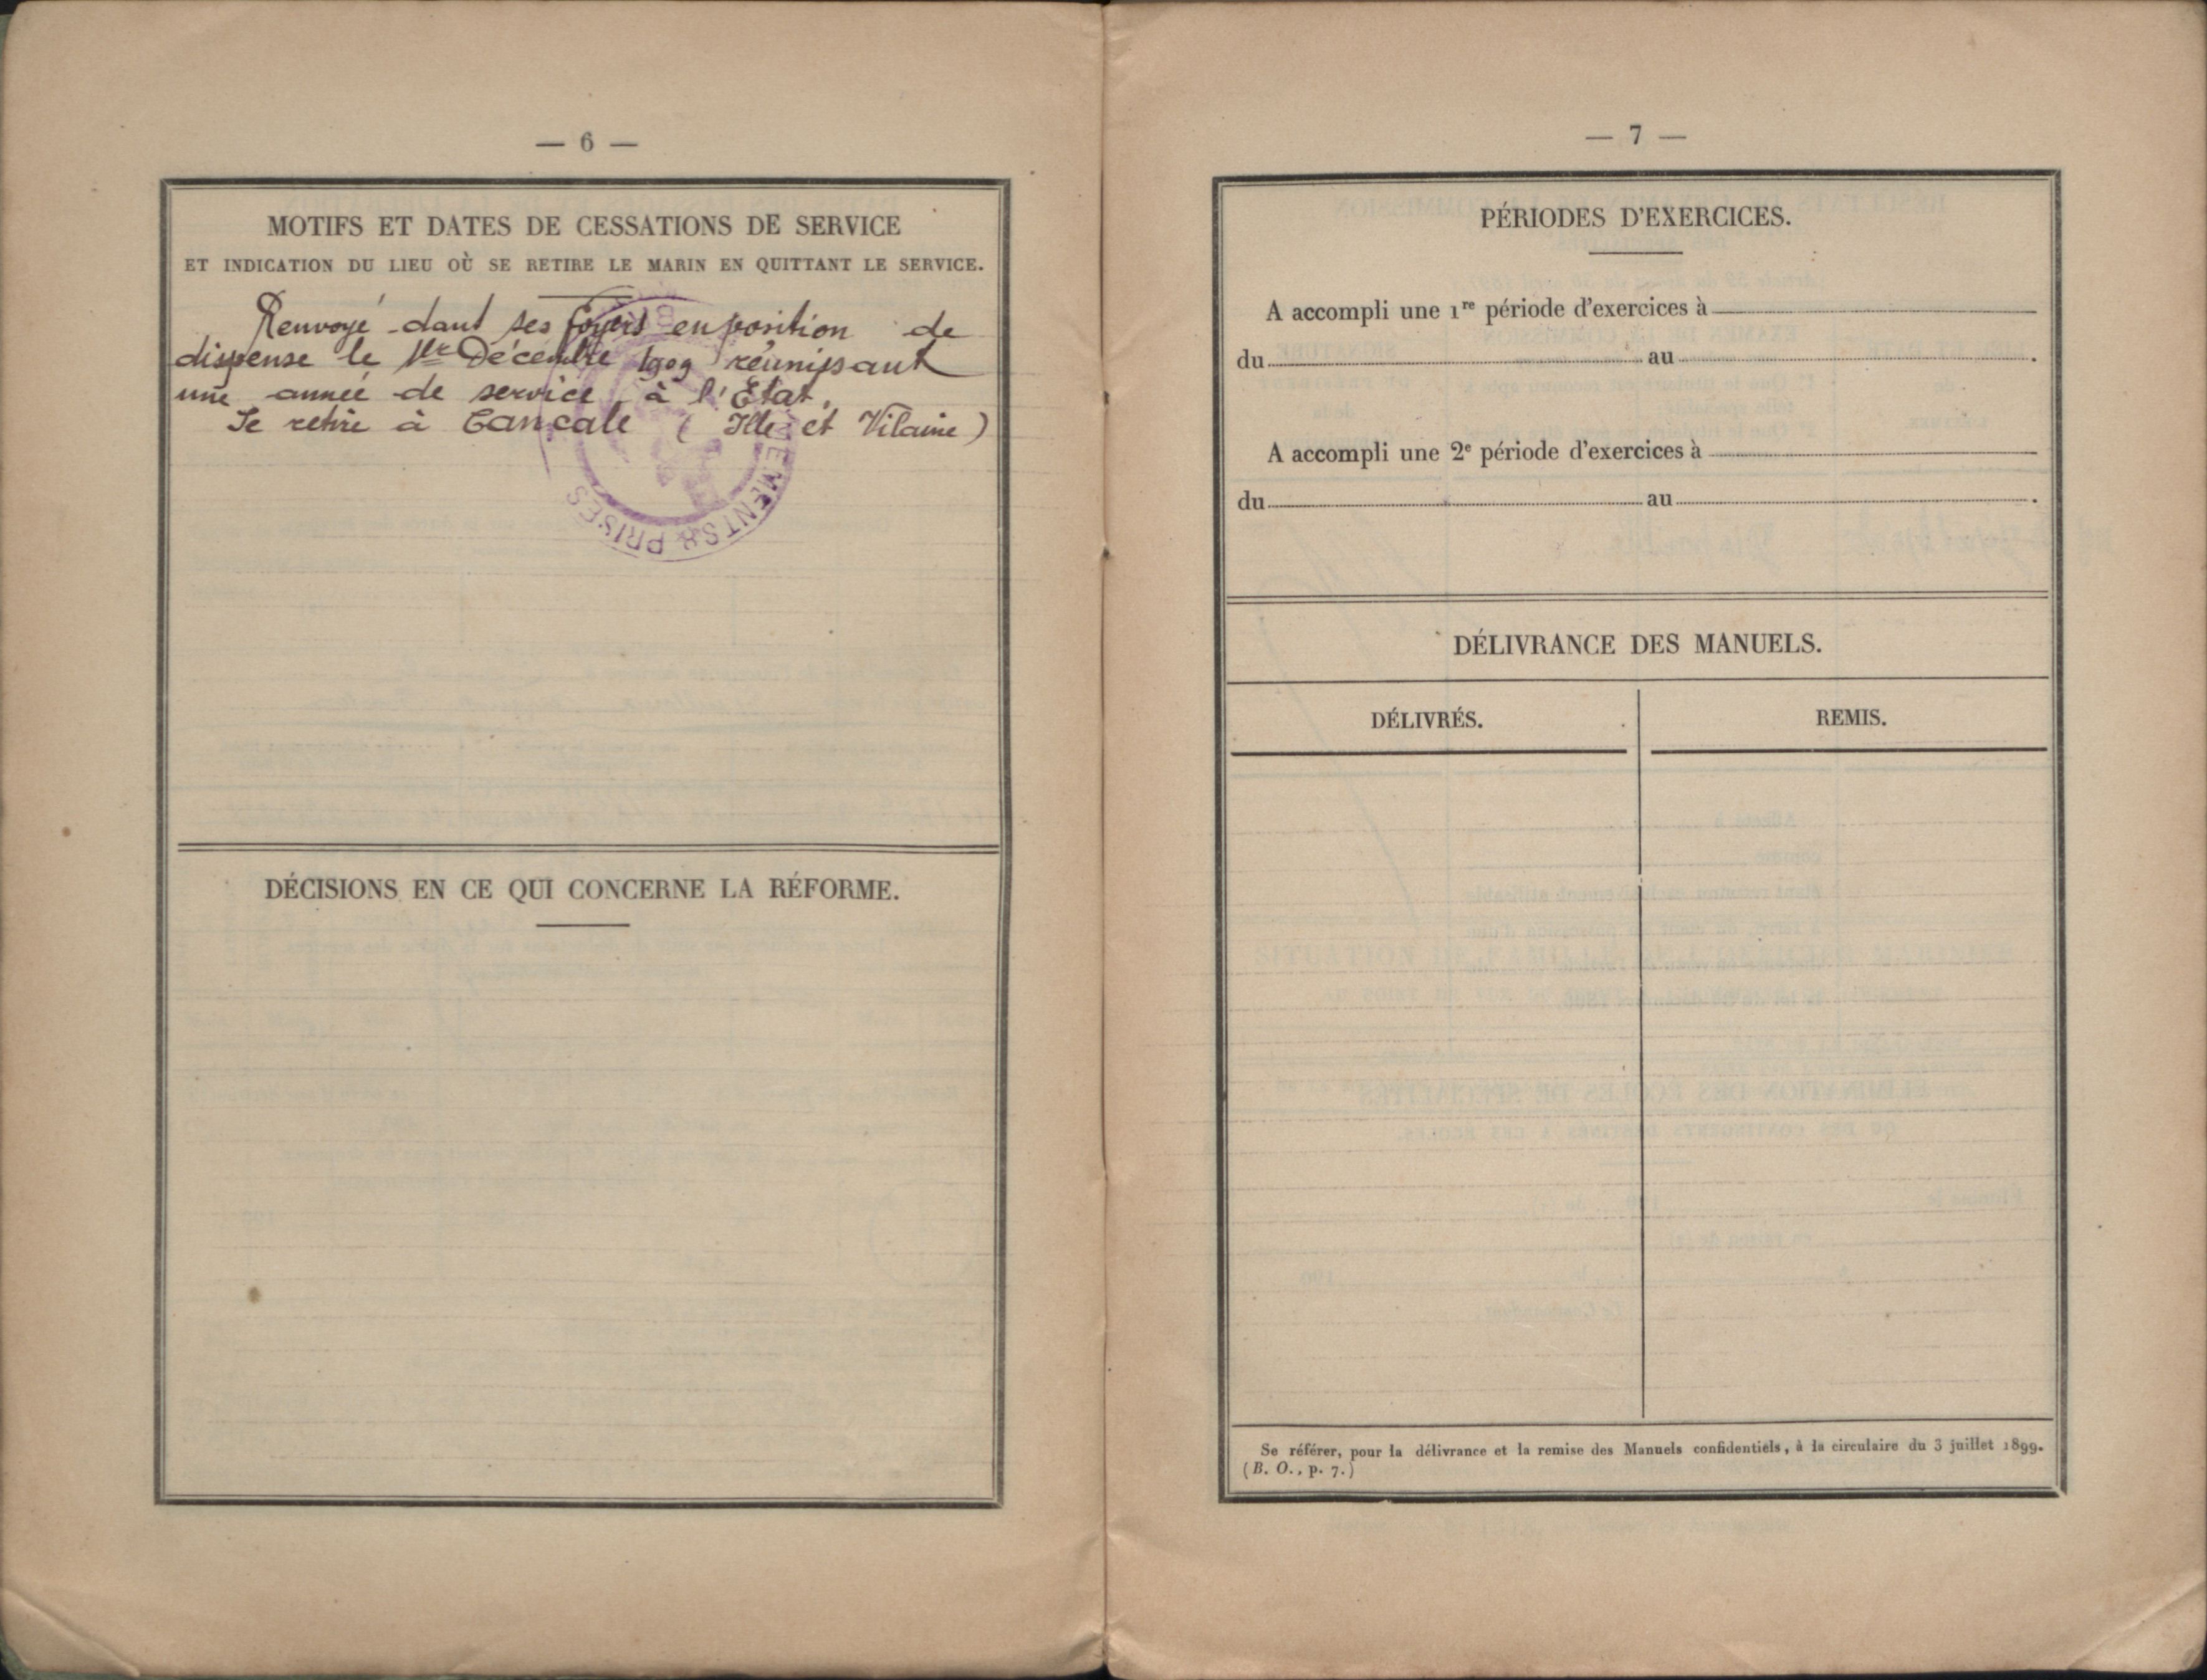 — 6 —
MOTIFS ET DATES DE CESSATIONS DE SERVICE
ET INDICATION DU LIEU OÙ SE RETIRE LE MARIN EN QUITTANT LE SERVICE.
Renvoyé dans ses foyers en position de
dispense le 1er Décembre 1909 réunissant
une année de service à l'Etat.
Se retire à Cancale (Ille et Vilaine)
EMENTS & PRISES
DÉCISIONS EN CE QUI CONCERNE LA RÉFORME.
— 7 —
PÉRIODES D'EXERCICES.
A accompli une 1re période d'exercices à
du au .
A accompli une 2e période d'exercices à
du au .
DÉLIVRANCE DES MANUELS.
DÉLIVRÉS. REMIS.
Se référer, pour la délivrance et la remise des Manuels confidentiels, à la circulaire du 3 juillet 1899.
(B. O., p. 7.)